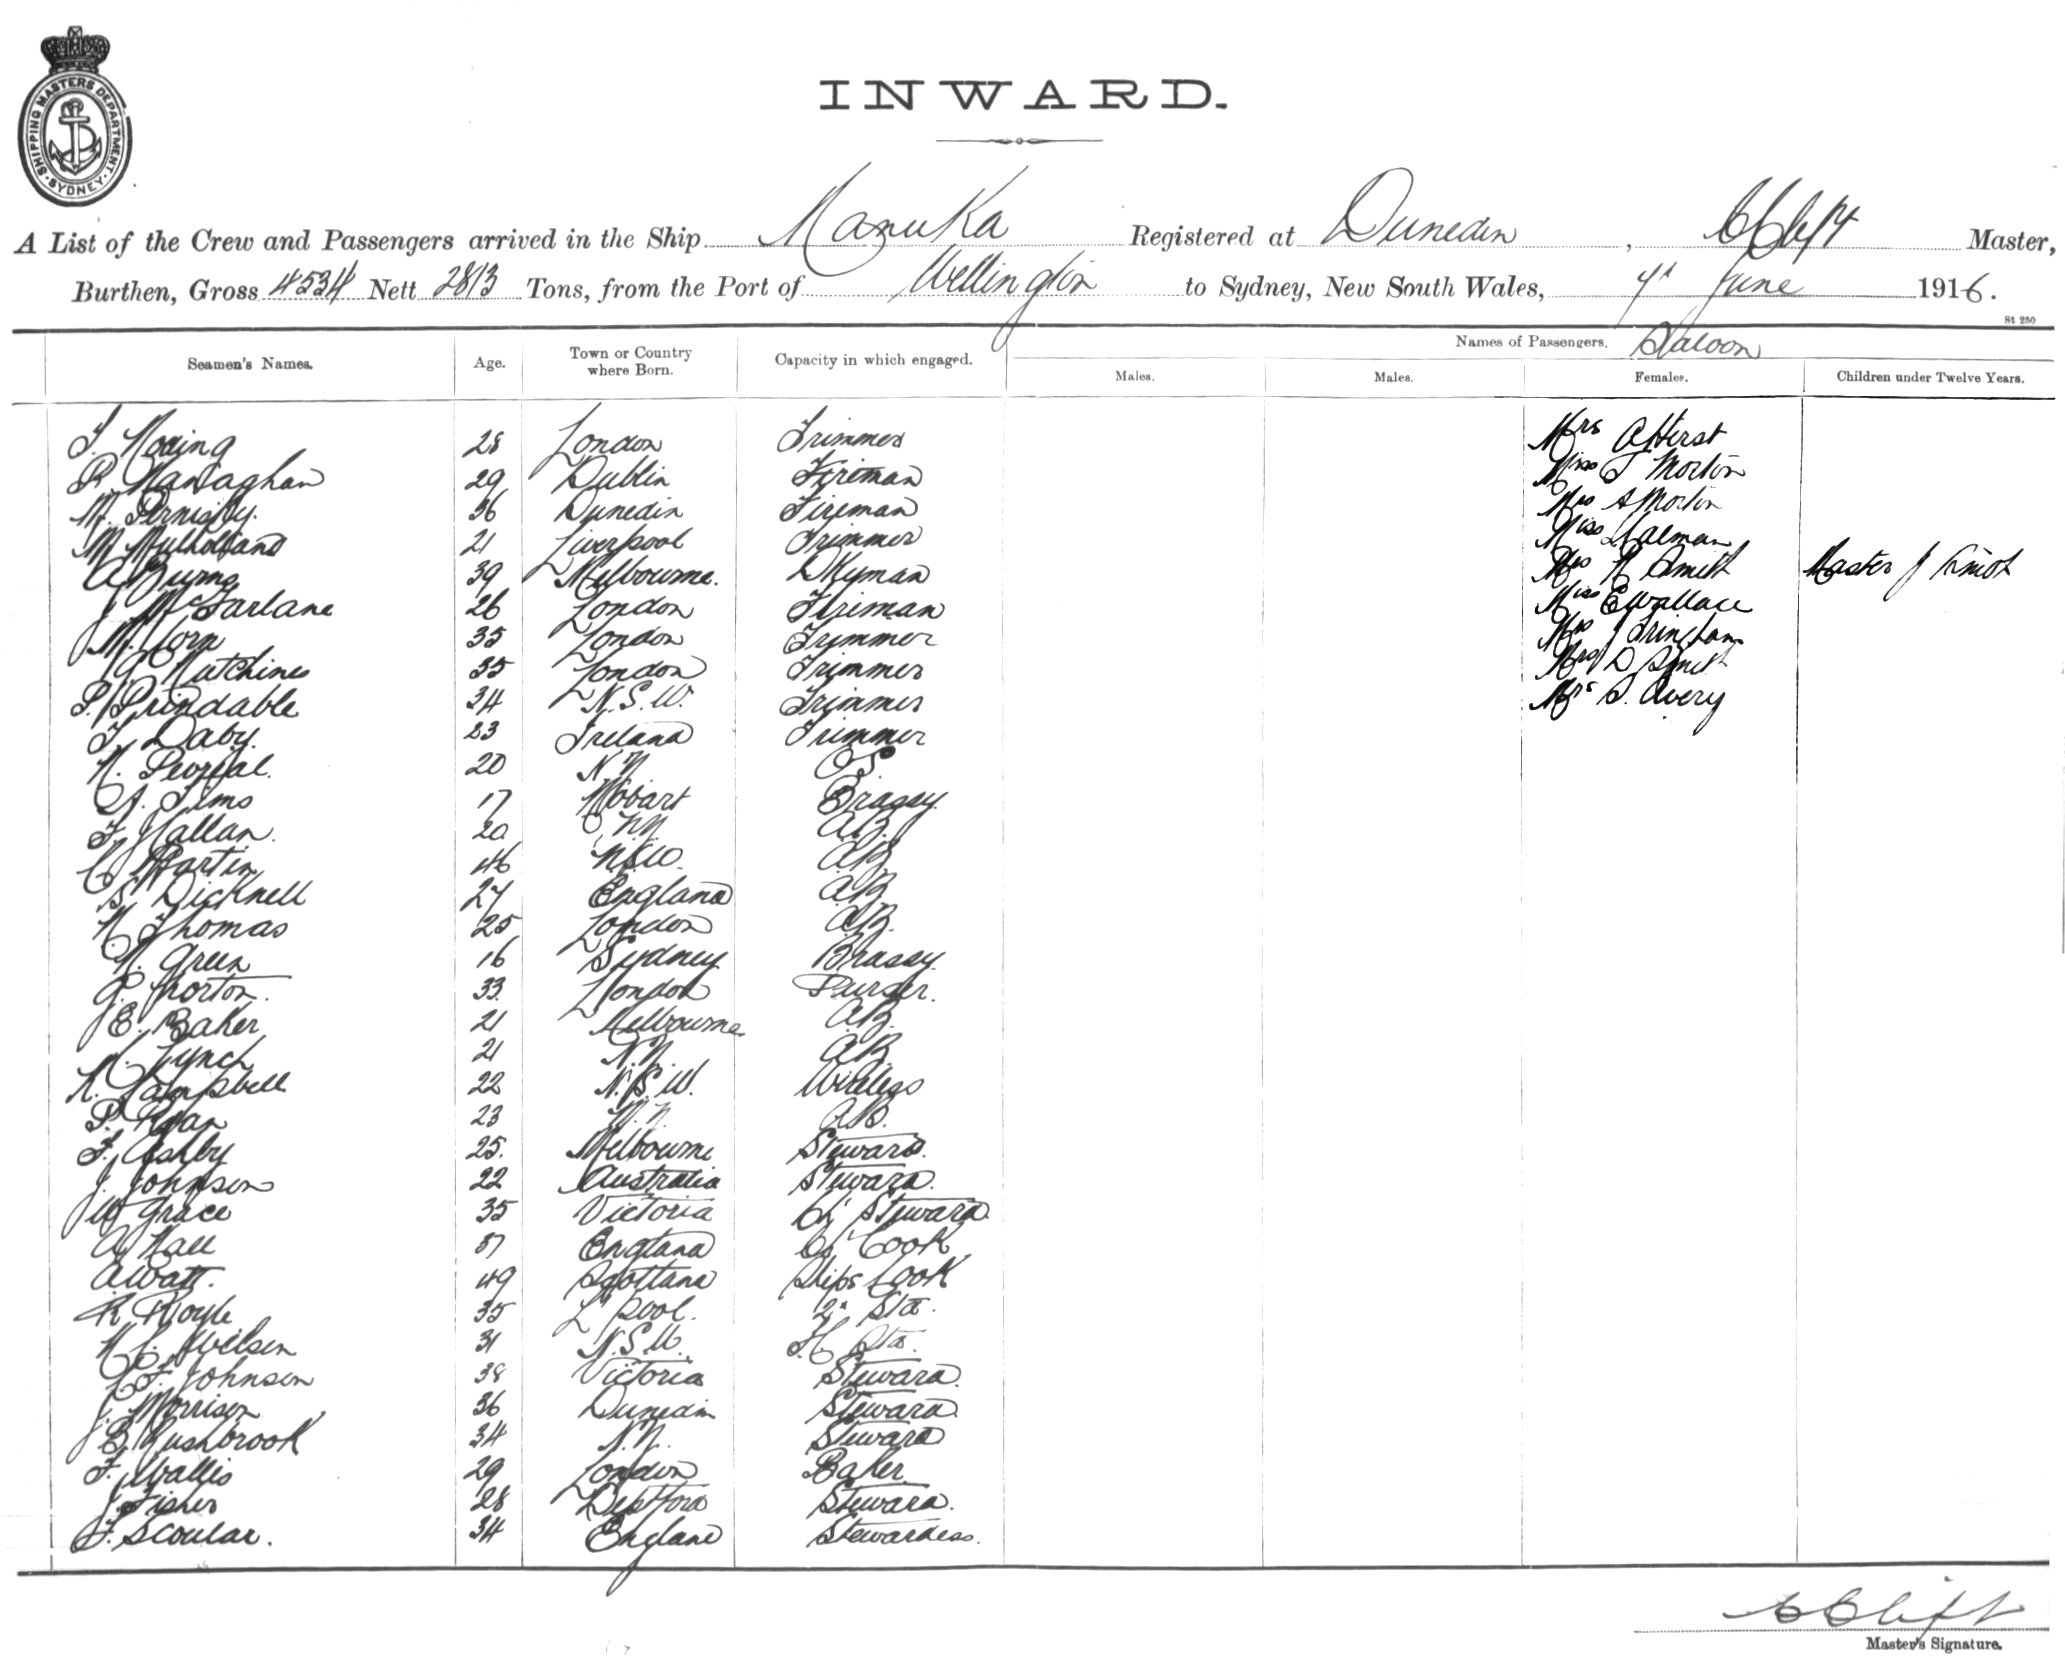 SHIPPING MASTERS DEPARTMENT. SYDNEY.
INWARD.
A List of the Crew and Passengers arrived in the Ship Manuka Registered at Dunedin, C Clift Master,
Burthen, Gross 4534 Nett 2813 Tons, from the Port of Wellington to Sydney, New South Wales, June 1916.
St 250
Names of Passengers. Saloon
Seamen's Names. Age. Town or Country where Born. Capacity in which engaged. Males. Males. Females. Children under Twelve Years.
28 London Trimmer Mrs A Hirst
29 Dublin Fireman Miss Morton
M. 36 Dunedin Fireman Mrs A Morton
M Mulholland 21 Liverpool Trimmer Miss
A Burns 39 Melbourne. Dkyman Mrs Smith Master J
J McFarlane 26 London Fireman Miss E Wallace
35 London Trimmer Mrs J
Hutchins 35 London Trimmer Mrs D Smith
P. Prindable 34 N.S.W. Trimmer Mrs S. Avery
T. Daby. 23 Ireland Trimmer
20 N Z O.S.
A. Sims 17 Hobart Brassy
F. Hallan. 20 N.Z. A.B.
C Martin 46 N.S.W. A.B.
S. Bicknell 27 England A.B.
H. Thomas 25 London A.B.
H. Green 16 Sydney Brassy.
33. London Purser.
J E. Baker 21 Melbourne A.B.
Lynch 21 N.Z. A.B.
Campbell 22 N.S.W. Wireless
P. Ryan 23 N.Z. A.B.
F. Ashby 25. Melbourne Steward.
J. Johnson 22 Australia Steward.
W Grace 35 Victoria Ch Steward.
A Hall 37 England Cook
A Watt. 49 Scotland Ships Cook
R Royle 35 L'pool. 2d Std.
H C. Wilson 31 N.S.W. Std.
F. Johnson 38 Victoria Steward.
J. Morrison 36 Dunedin Steward.
E. Rushbrook 34 N.Z. Steward
F. Wallis 29 London Baker
J. Fisher 28 Deptford Steward.
F. Scoular. 34 England Stewardess.
C Clift
Master's Signature.